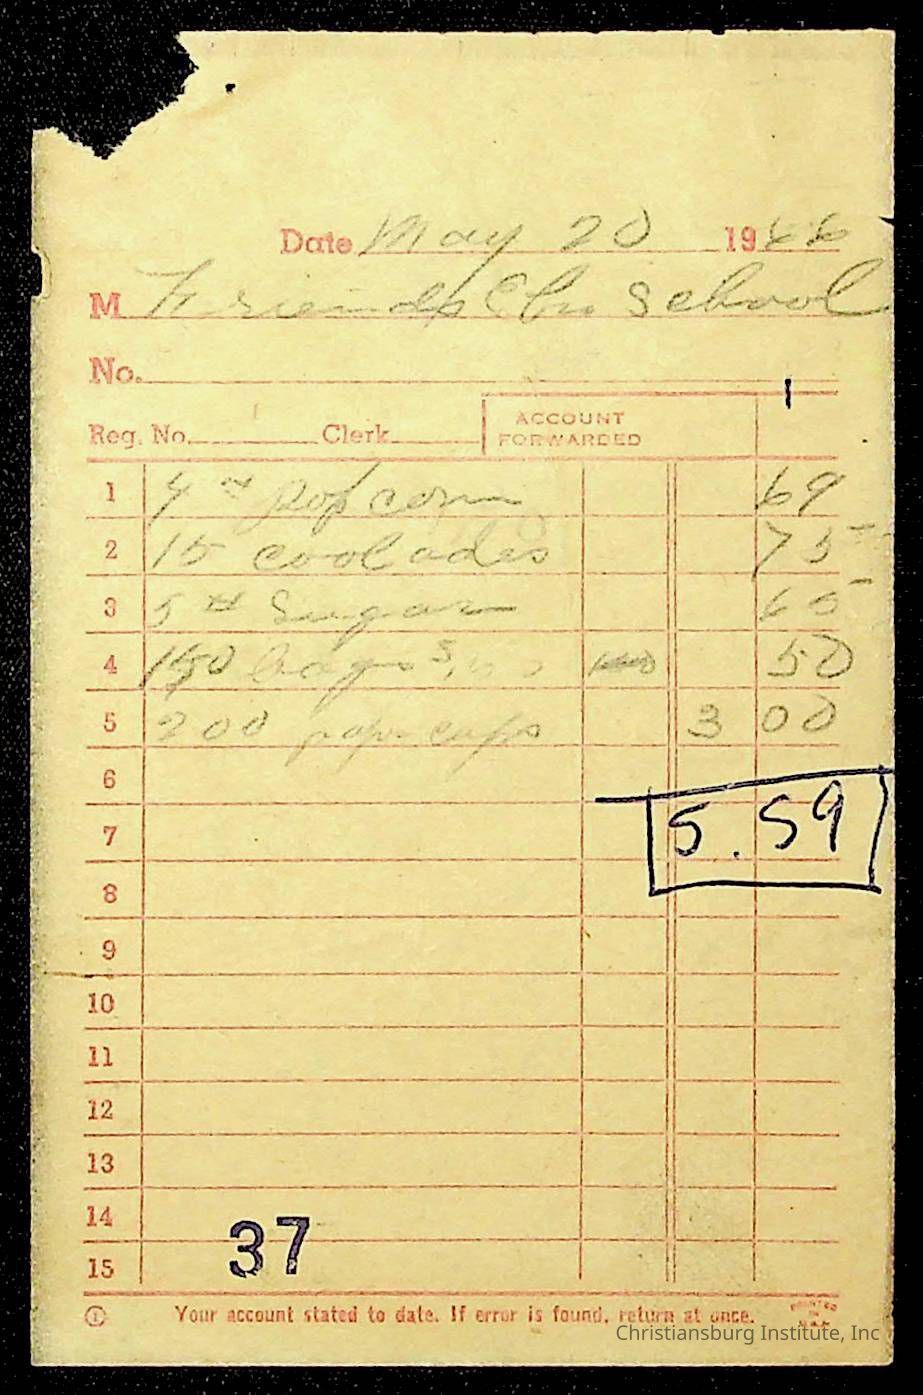 Date May 20 1966
M Friends Elm School
No.
Reg. No. Clerk ACCOUNT FORWARDED
1 4 # Popcorn 69
2 15 coolades 75
3 5 # Sugar 65
4 150 bags 50
5 200 paper cups 3 00
6
5.59
7
8
9
10
11
12
13
14
37
15
Your account stated to date. If error is found, return at once.
PRINTED IN U.S.A.
Christiansburg Institute, Inc